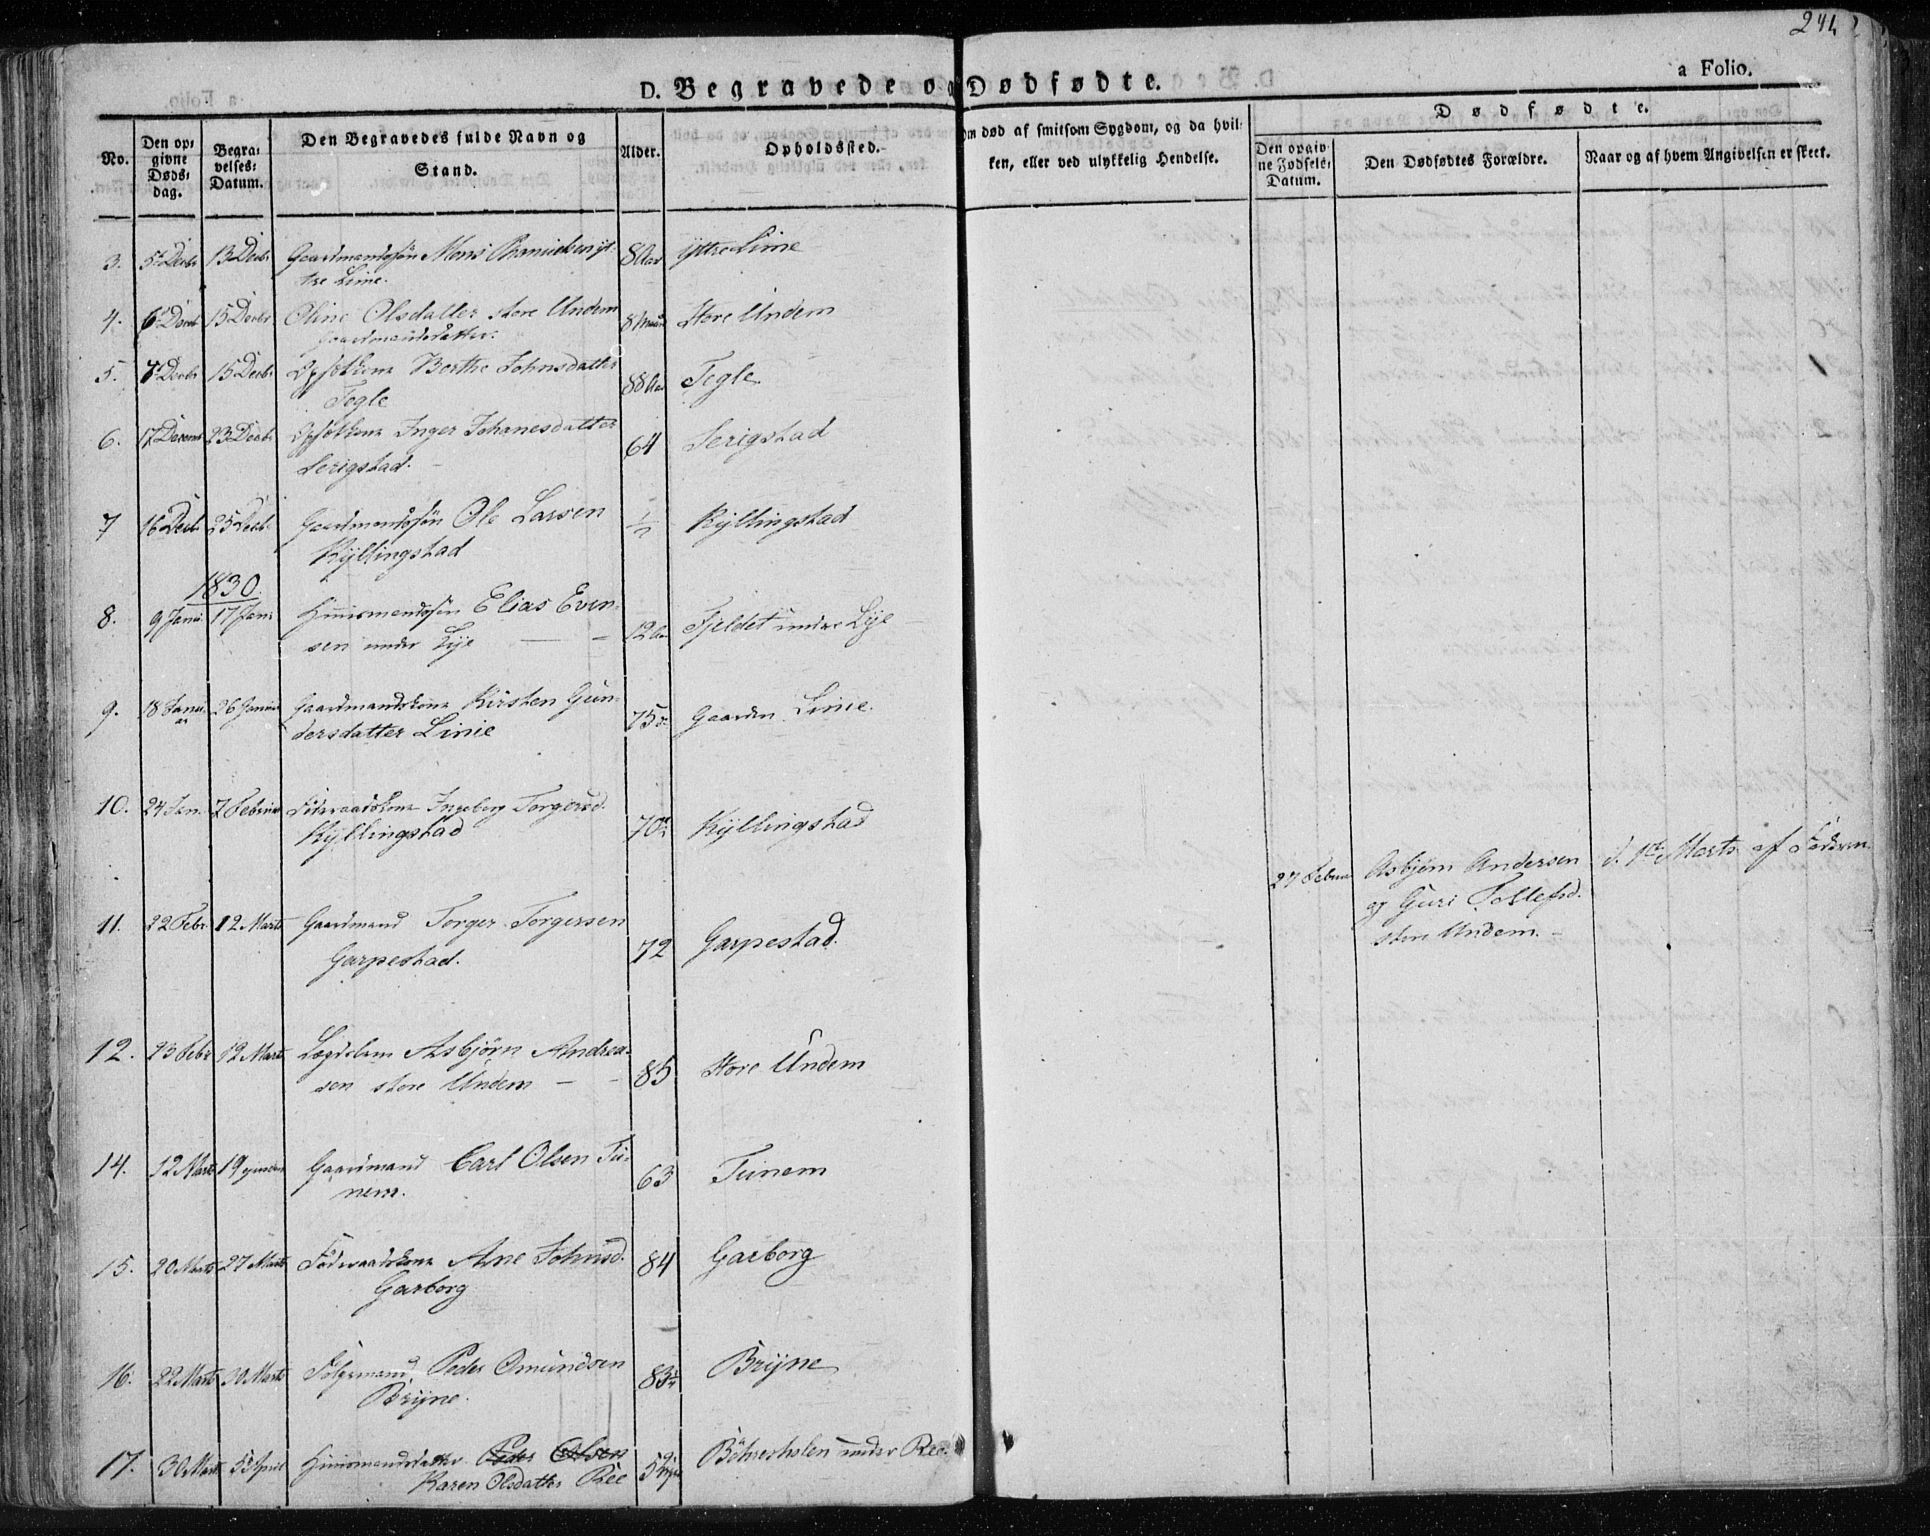 241
D. Begravede og Dødfødte.
a Folio.
No.
Den op=
givne
Døds=
dag.
Begra=
velses=
Datum.
Den Begravedes fulde Navn og
Stand.
Alder.
Opholdssted.
Om død af smitsom Sygdom, og da hvil=
ken, eller ved ulykkelig Hendelse.
Dødfødte.
Den opgiv=
ne Fødsels=
Datum.
Den Dødfødtes Forældre.
Naar og af hvem Angivelsen er skeet.
3. 5 Decbr 13 Decbr Gaardmandssøn Mons yt=
tre Lime. 8 Aar Yttre Lime
4. 6 Decbr 15 Decbr Oline Olsdatter store Undem
Gaardmandsdatter. 8 Store Undem
5. 7 Decbr 15 Decbr Berthe Johnsdatter
Tegle 88 Aar Tegle
6. 17 Decembr 23 Decbr Inger Johanesdatter
Serigstad. 64 Serigstad
7 16 Decbr 25 Decbr Gaardmandssøn Ole Larsen
Kyllingstad ½ Kyllingstad
1830.
8. 9 Janu 17 Janu Huusmandssøn Elias Even=
sen under Lye 12 Fjeldet under Lye
9. 18 Janu
ar 26 Januar Gaardmandskone Kirsten Gun=
dersdatter Linie 75 Gaarden Linie.
10. 24 Jan. 7 Februar Føderaadskone Ingeborg Torgersd.
Kyllingstad 70 Kyllingstad
27 Februar Asbjørn Andersen
og Guri Tollefsd.
store Undem.
d. 1ste Marts af Faderen
11. 22 Febr. 12 Marts Gaardmand Torger Torgersen
Garpestad. 72 Garpestad.
12. 23 Febr 12 Marts Lægdslem Asbjørn Andrea=
sen store Undem 85 Store Undem
14. 12 Marts 19 Gaardmand Carl Olsen Tu=
nem. 63 Tunem
15. 20 Marts 27 Marts Føderaadskone Ane Johnsd.
Garborg 84 Garborg
16. 22 Marts 30 Marts Peder Omundsen
Bryne. 83 Bryne
17. 30 Marts 5 April Huusmandsdatter Peder Olsen
Karen Olsdatter Ree 5 under Ree